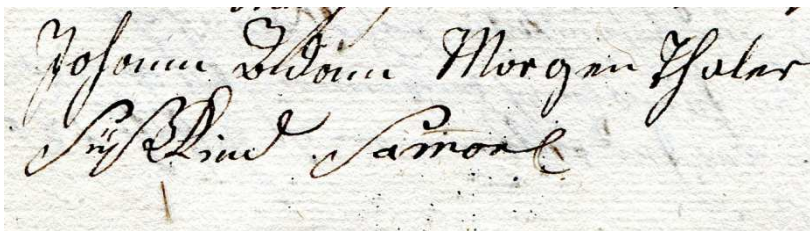 Johann Adam Morgen Thaler
Süßkind Samuel